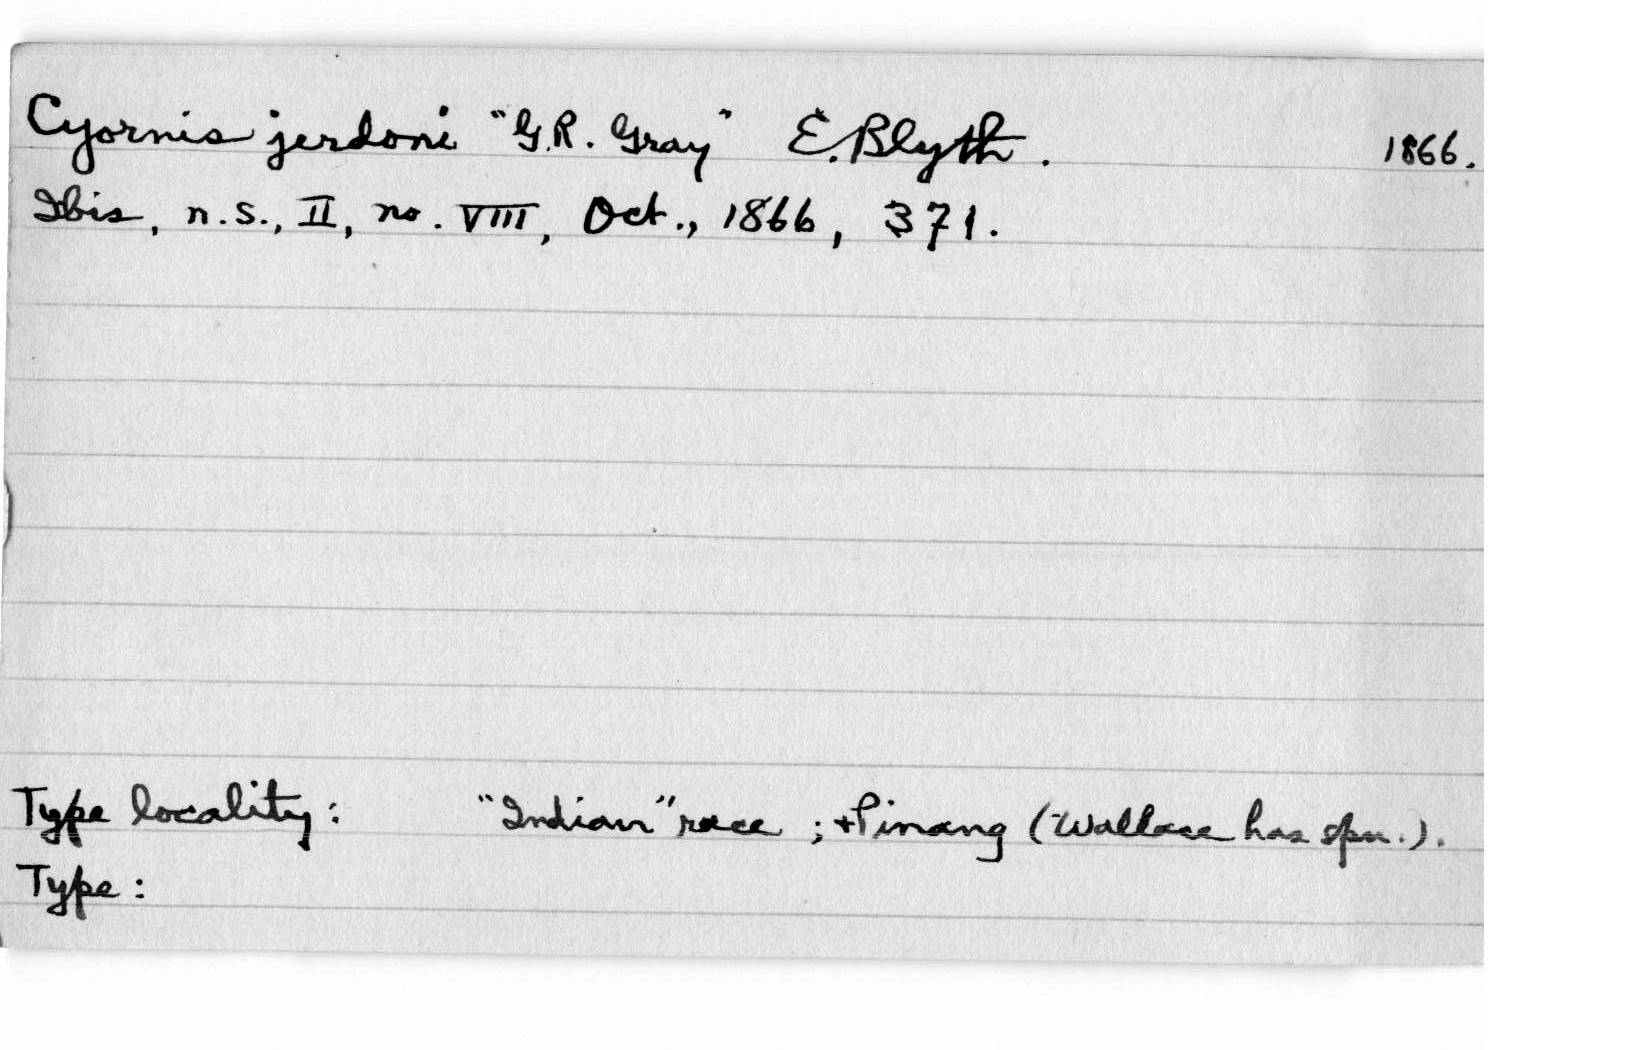 Cyornis jerdoni "G.R. Gray" E. Blyth. 1866.
Ibis, n.s., II, no. VIII, Oct., 1866, 371.
Type locality: "Indian" race; + Pinang (Wallace has spn.).
Type: